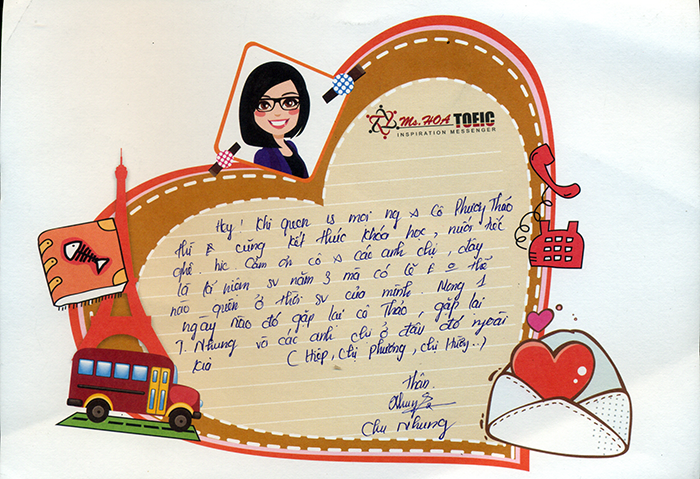 Ms. HOA TOEIC
INSPIRATION MESSENGER
Hey! Khi quen vs mọi ng & Cô Phương Thảo
thì cũng kết thúc khóa học, nuối tiếc
ghê. hic. Cảm ơn cô & các anh chị, đây
là kỉ niệm sv năm 3 mà có lẽ E o thể
nào quên ở thời sv của mình. Mong 1
ngày nào đó gặp lại cô Thảo, gặp lại
T. Nhung và các anh chị ở đâu đó ngoài
kia (Hiệp, chị Phương, chị Hiền..)
Thân.
Chu Nhung